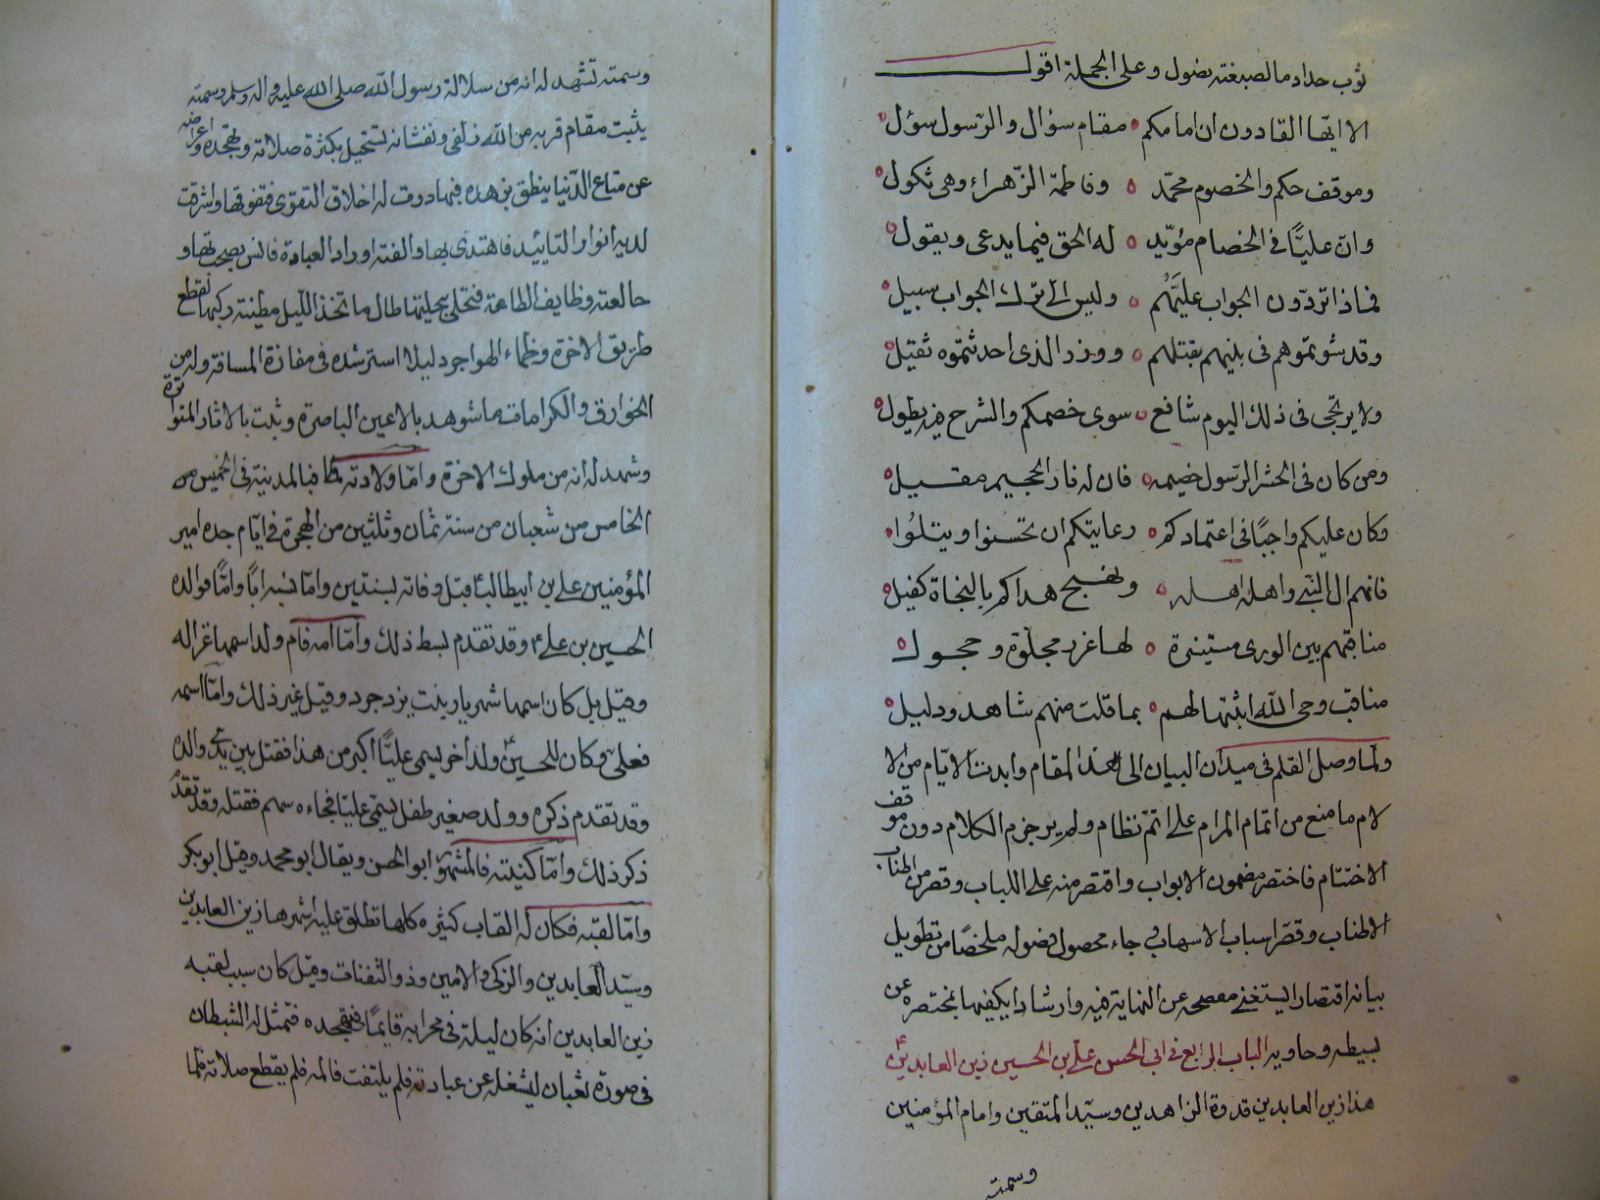 ثوب حداد ما لصبغته نضول وعلى الجملة اقول
الا ايها القادون ان امامكم مقام سؤال والرّسول سؤل
وموقف حكم والخصوم محمّد وفاطمة الزّهراء وهى ثكول
وانّ عليًّا فى الخصام مؤيّد له الحق فيما يدعى ويقول
فماذا تردّون الجواب عليَهُم وليس الى ترك الجواب سبيل
وقد سؤتموهم فى بنيهم بقتلهم ووزر الذى احدثتموه ثقيل
ولا يرتجى فى ذلك اليوم شافع سوى خصمكم والشرح فيه يطول
ومن كان فى الحشر الرّسول خصيمه فان له نار الجحيم مقيل
وكان عليكم واجبًا فى اعتمادكم رعايتكم ان تحسنوا وينيلُوا
فانهم ال النّبى واهله اهله ونهج هداكم بالنجاة كفيل
مناقبهم بين الورى مستنيرة لها غرر مجلوّة وحجول
مناقب وحى الله اثبتها لهم بما قلت منهم شاهد ودليل
ولما وصل القلم فى ميدان البيان الى هذا المقام وابدت الايّام من الا
لام ما منع من اتمام المرام على اتمّ نظام ولم ير جزم الكلام دون موقف
الاختتام فاختصر مضمون الابواب واقتصر منه على اللباب وقصر من اطناب
الاطناب وقصّر اسباب الاسهاب فجاء محصول فصوله ملخصًا من تطويل
بيانه اقتصارا يستغنى بمحصله عن النهاية فيه وارشادا يكتفى بمختصره عن
بسيطه وحاويه الباب الرابع فى ابى الحسن على بن الحسين زين العابدين
هذا زين العابدين قدوة الزاهدين وسيّد المتقين وامام المؤمنين
وسمته
وسمته تشهد له انه من سلالة رسول الله صلى الله عليه واله وسلم وسمته
يثبت مقام قربه من الله زلفى ونفثاته تسجل بكثرة صلاته وتهجده واعراضه
عن متاع الدّنيا ينطق بزهده فيها درت له اخلاق التقوى ففوقها واشرقت
لديه انوار التاييد فاهتدى بها والفته اوراد العبادة فانس بصحبتها و
حالفته وظايف الطاعة فتحلى بحليتها طال ما تخذ الليل مطيّته ركبها لقطع
طريق الاخرة وظماء الهواجر دليلا استرشده فى مفازة المسافة وله من
الخوارق والكرامات ما شوهد بالاعين الباصرة وثبت بالاثار المتواترة
وشهد له انه من ملوك الاخرة وامّا ولادته فبالمدينة فى الخميس
الخامس من شعبان من سنة ثمان وثلثين من الهجرة فى ايّام جده امير
المؤمنين على بن ابيطالب قبل وفاته بسنتين وامّا نسبه ابًا وامًّا فوالده
الحسين بن على وقد تقدم بسط ذلك وامّا امه فام ولد اسمها غزاله
وقيل بل كان اسمها شهر يار بنت يزدجرد وقيل غير ذلك وامّا اسمه
فعلى وكان للحسين ولد اخر يسمى عليًّا اكبر من هذا فقتل بين يدى والده
وقد تقدم ذكره وولد صغير طفل يسمّى عليّا فجاءه سهم فقتله وقد تقدم
ذكر ذلك وامّا كنيته فالمشهور ابو الحسن ويقال ابو محمد وقيل ابو بكر
وامّا لقبه فكان له القاب كثيره كلها تطلق عليه اشهرها زين العابدين
وسيّد العابدين والزكى والامين وذو الثفنات وقيل كان سبب لقبه
زين العابدين انه كان ليلة فى محرابه قايمًا فى تهجده فتمثل له الشيطان
فى صورة ثعبان ليشغله عن عبادته فلم يلتفت فالمه فلم يقطع صلاته فلما